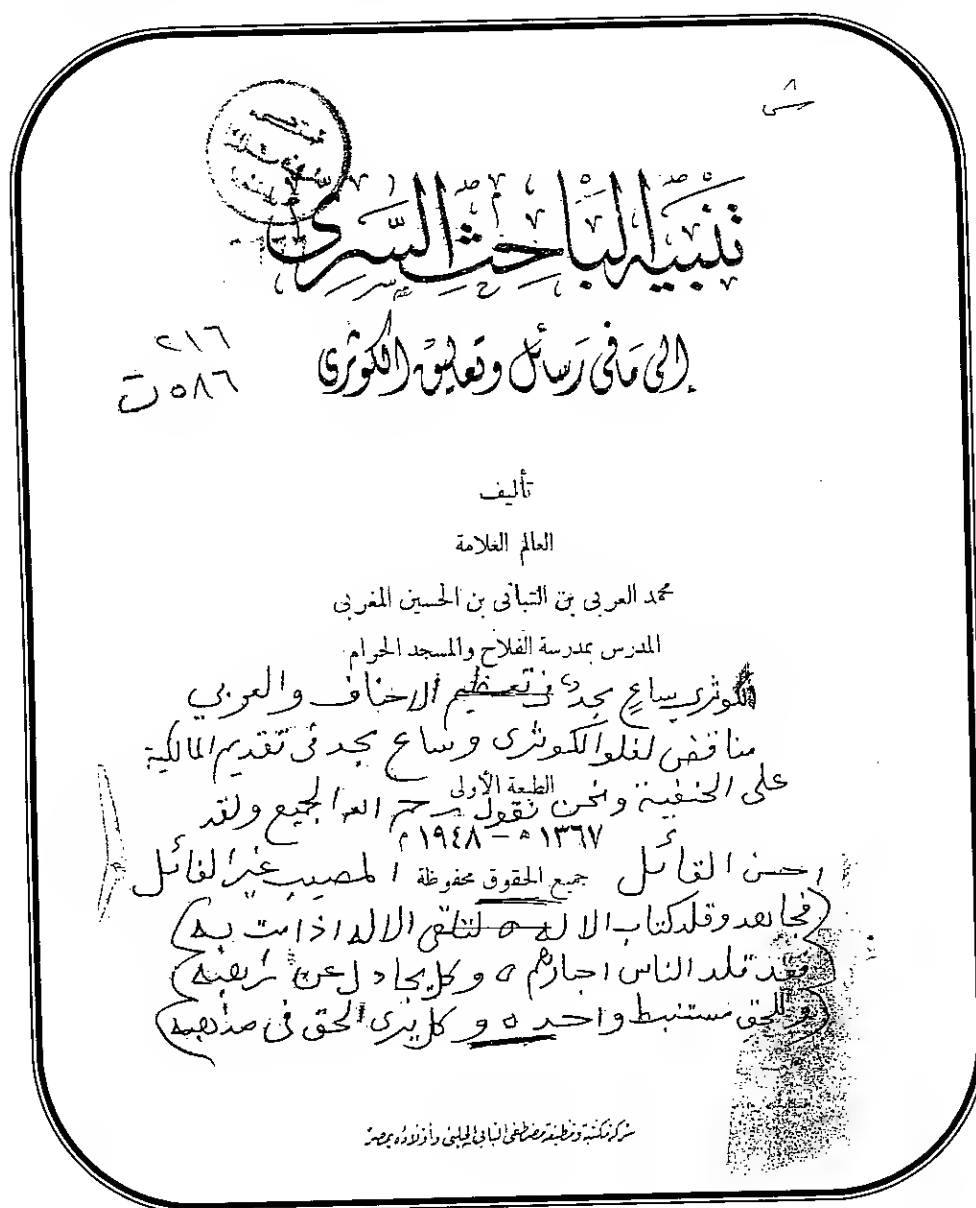 ٨
تنبيه الباحث السرى
إلى ما فى رسائل وتعاليق الكوثرى
٢١٦
٥٨٦ ت
تأليف
العالم العلامة
محمد العربى بن التبانى بن الحسين المغربى
المدرس بمدرسة الفلاح والمسجد الحرام
الكوثري ساعٍ بجد فى تعظيم الاحناف والعربي
مناقض لغلو الكوثرى وساع بجد فى تقديم المالكية
على الحنفية ونحن نقول رحم الله الجميع ولقد
الطبعة الأولى
١٣٦٧ ه - ١٩٤٨ م
احسن القائل المصيب غير الفائل
جميع الحقوق محفوظة
فجاهد وقلد كتاب الاله ٥ لتلقى الاله اذا مت به
فقد قلد الناس احبارهم ٥ وكل يجادل عن
وللحق مستنبط واحد ٥ وكل يرى الحق فى مذهبه
شركة مكتبة ومطبعة مصطفى البابى الحلبى وأولاده بمصر